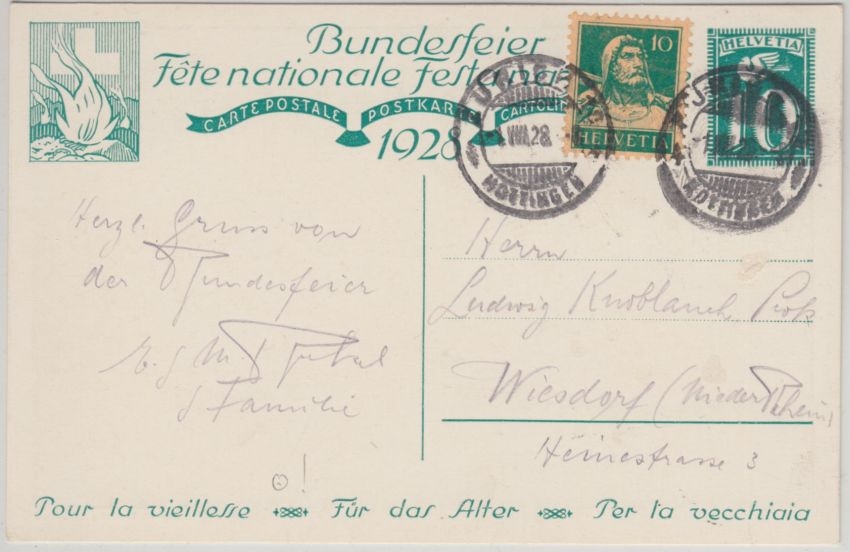 Bundesfeier
Fête nationale Festa na
CARTE POSTALE POSTKARTE CARTOLIN
1928
10
HELVETIA
HELVETIA
10
VIII.28
HOTTINGEN
HOTTINGEN
Herzl. Gruss von
der Bundesfeier
Familie
Herrn
Ludwig Knoblauch
Wiesdorf (Niederrhein)
Heinestrasse 3
Pour la vieillesse Für das Alter Per la vecchiaia